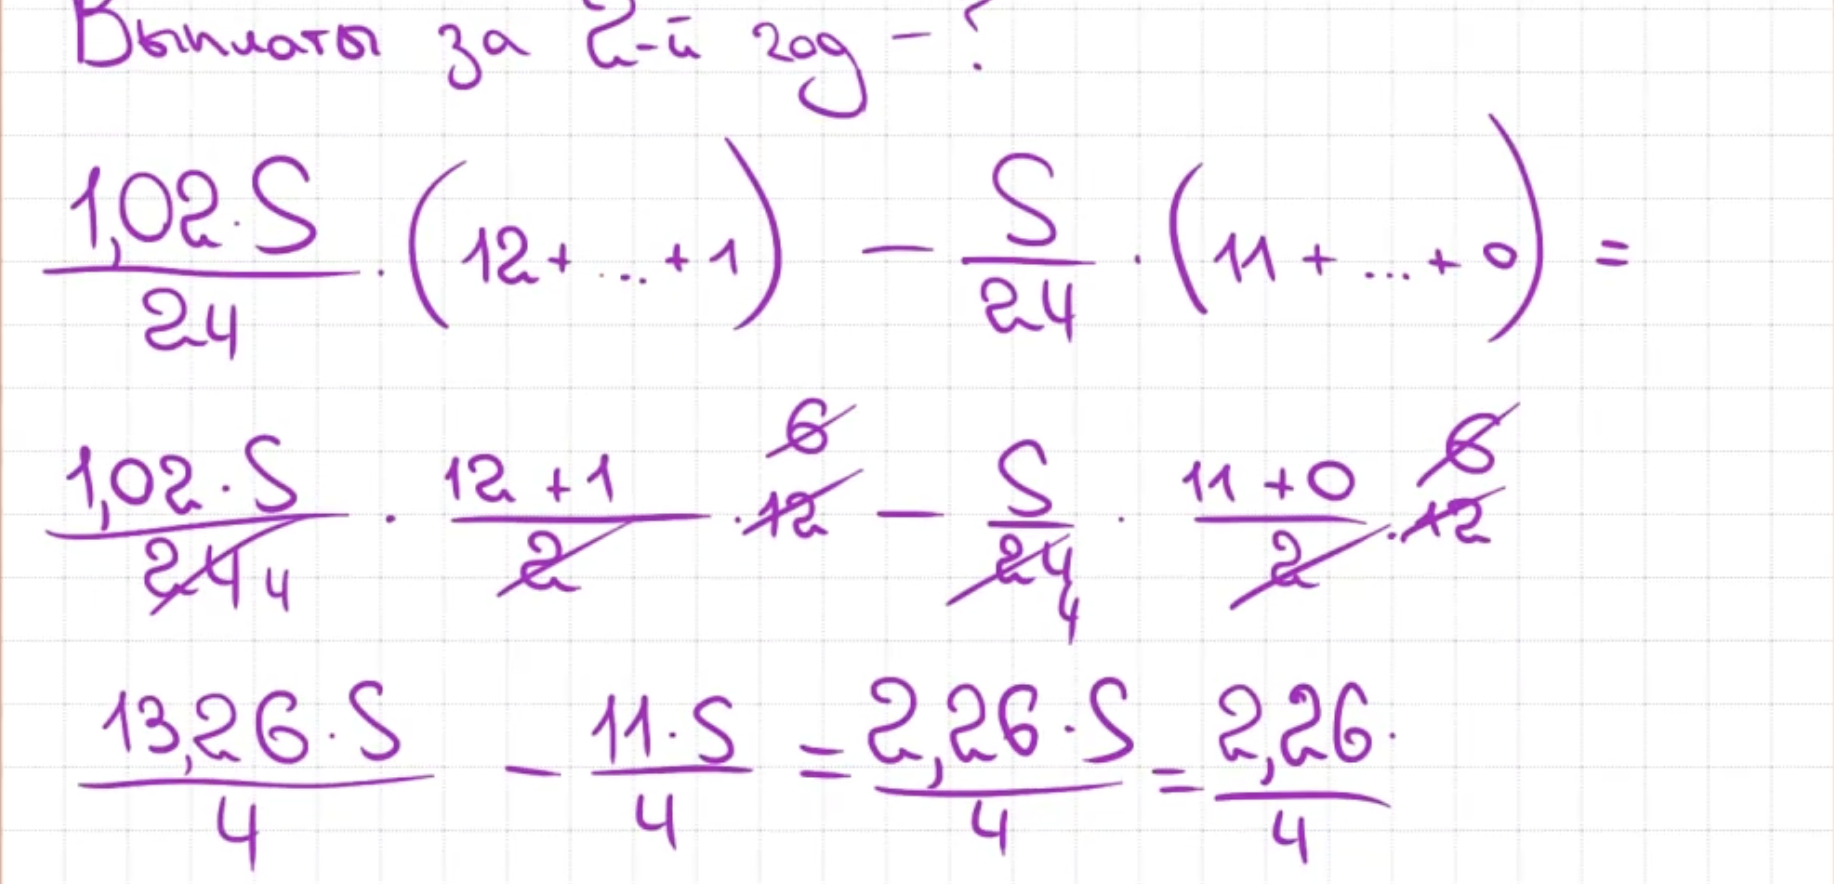 Выплаты за 2-й год - ?
1,02·S/24 · (12 + ... + 1) - S/24 · (11 + ... + 0) =
1,02·S/24 4 · 12+1/2 · 12 6 - S/24 4 · 11+0/2 · 12 6
13,26·S/4 - 11·S/4 = 2,26·S/4 = 2,26·/4